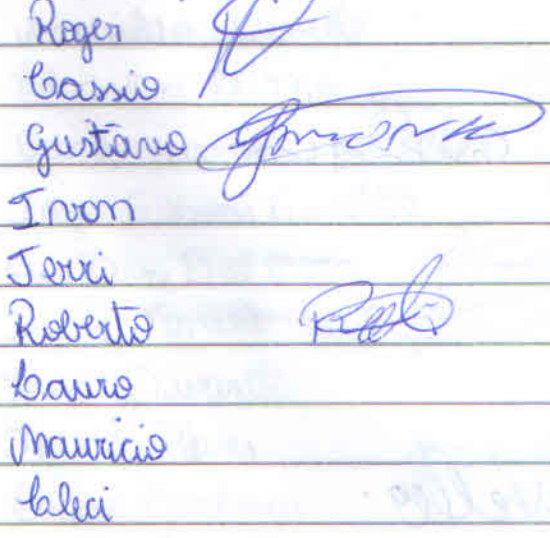 Roger
Cassio
Gustavo
Ivon
Jerri
Roberto
Lauro
Mauricio
Cleci